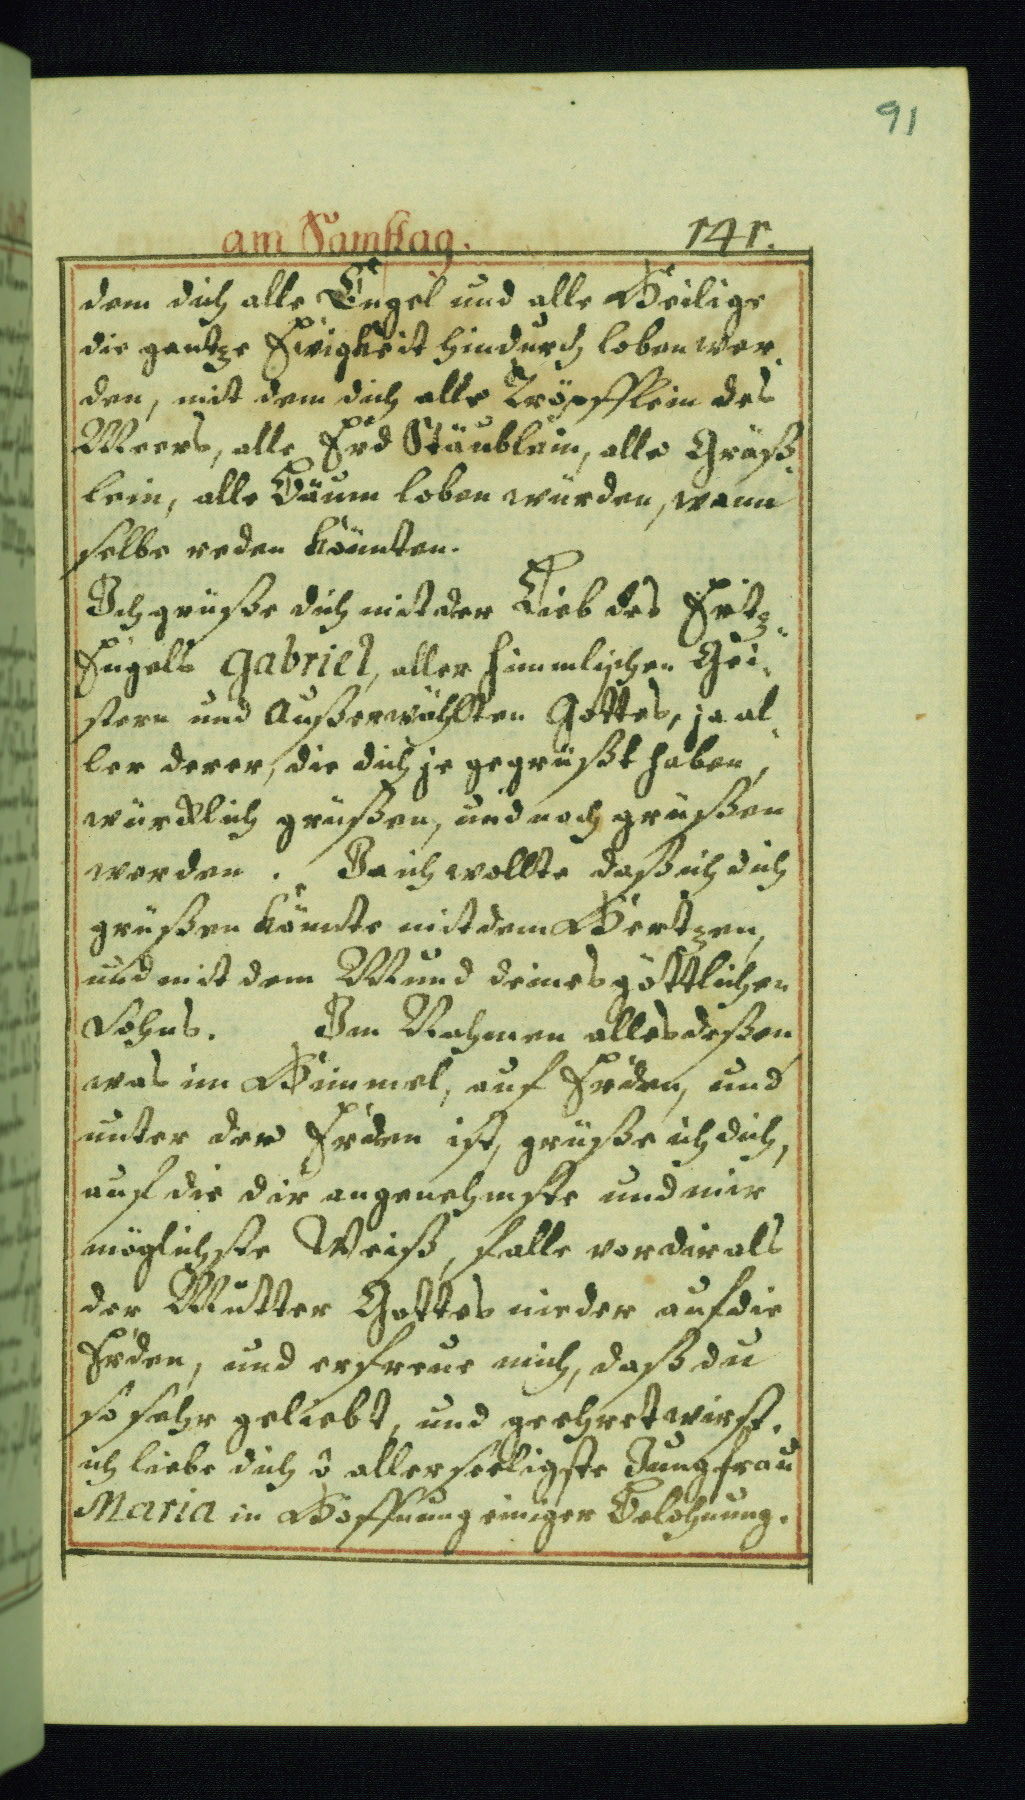 91
am Samstag. 141.
dem dich alle Engel und alle Heilige
die gantze Ewigkeit hindurch loben wer-
den, mit dem dich alle Tröpfflein des
Meers, alle Erd Stäublein, alle Gräß-
lein, alle Bäum loben würden, wann
selbe reden könnten.
Ich grüße dich mit der Lieb des Ertz-
Engels Gabriel, aller himmlischen Gei-
stern und Außerwöhlten Gottes, ja al-
ler derer, die dich je gegrüßt haben,
würcklich grüßen, und noch grüßen
werden. Ja ich wollte daß ich dich
grüßen könnte mit dem Hertzen,
und mit dem Mund deines göttlichen
Sohns. Im Nahmen alles deßen
was im Himmel, auf Erden, und
unter der Erden ist, grüße ich dich,
auf die dir angenehmste und mir
möglichste Weiß, falle vor dir als
der Mutter Gottes nieder auf die
Erden, und erfreue mich, daß du
so sehr geliebt, und geehret wirst.
ich liebe dich ô allerseeligste Jungfrau
Maria in Hoffnung einiger Belohnung.